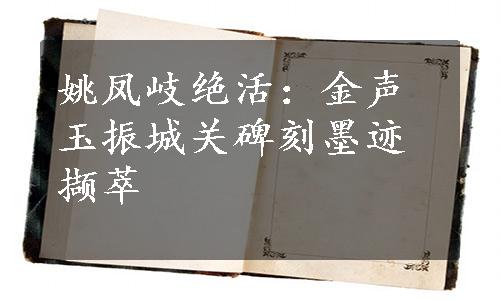 姚凤岐绝活：金声
玉振城关碑刻墨迹
撷萃